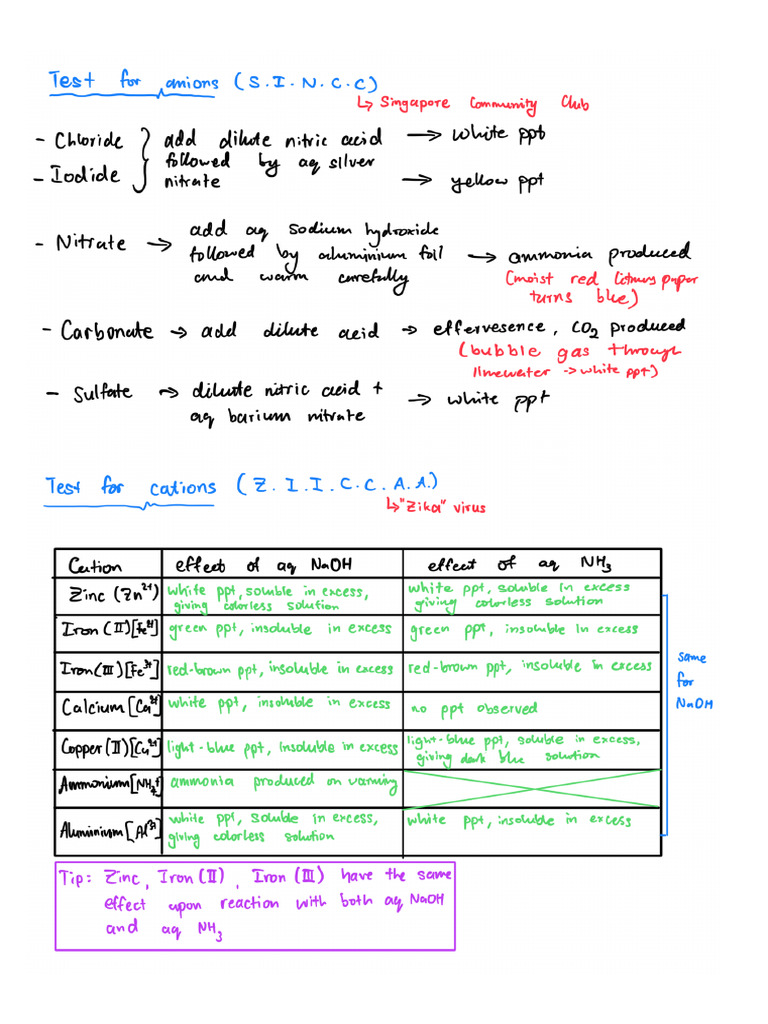 Test for anions (S.I.N.C.C)
↳ Singapore Community Club
- Chloride } add dilute nitric acid → white ppt
- Iodide followed by aq silver
nitrate → yellow ppt
- Nitrate → add aq sodium hydroxide
followed by aluminium foil → ammonia produced
and warm carefully (moist red litmus paper
turns blue)
- Carbonate → add dilute acid → effervesence, CO2 produced
(bubble gas through
limewater → white ppt)
- Sulfate → dilute nitric acid + → white ppt
aq barium nitrate
Test for cations (Z.I.I.C.C.A.A.)
↳ "Zika" virus
Cation effect of aq NaOH effect of aq NH3
Zinc (Zn2+) white ppt, soluble in excess, white ppt, soluble in excess
giving colorless solution giving colorless solution
Iron (II) [Fe2+] green ppt, insoluble in excess green ppt, insoluble in excess
Iron (III) [Fe3+] red-brown ppt, insoluble in excess red-brown ppt, insoluble in excess
Calcium [Ca2+] white ppt, insoluble in excess no ppt observed
Copper (II) [Cu2+] light-blue ppt, insoluble in excess light-blue ppt, soluble in excess,
giving dark blue solution
Ammonium [NH4+] ammonia produced on warming
Aluminium [Al3+] white ppt, soluble in excess, white ppt, insoluble in excess
giving colorless solution
same
for
NaOH
Tip: Zinc, Iron (II), Iron (III) have the same
effect upon reaction with both aq NaOH
and aq NH3